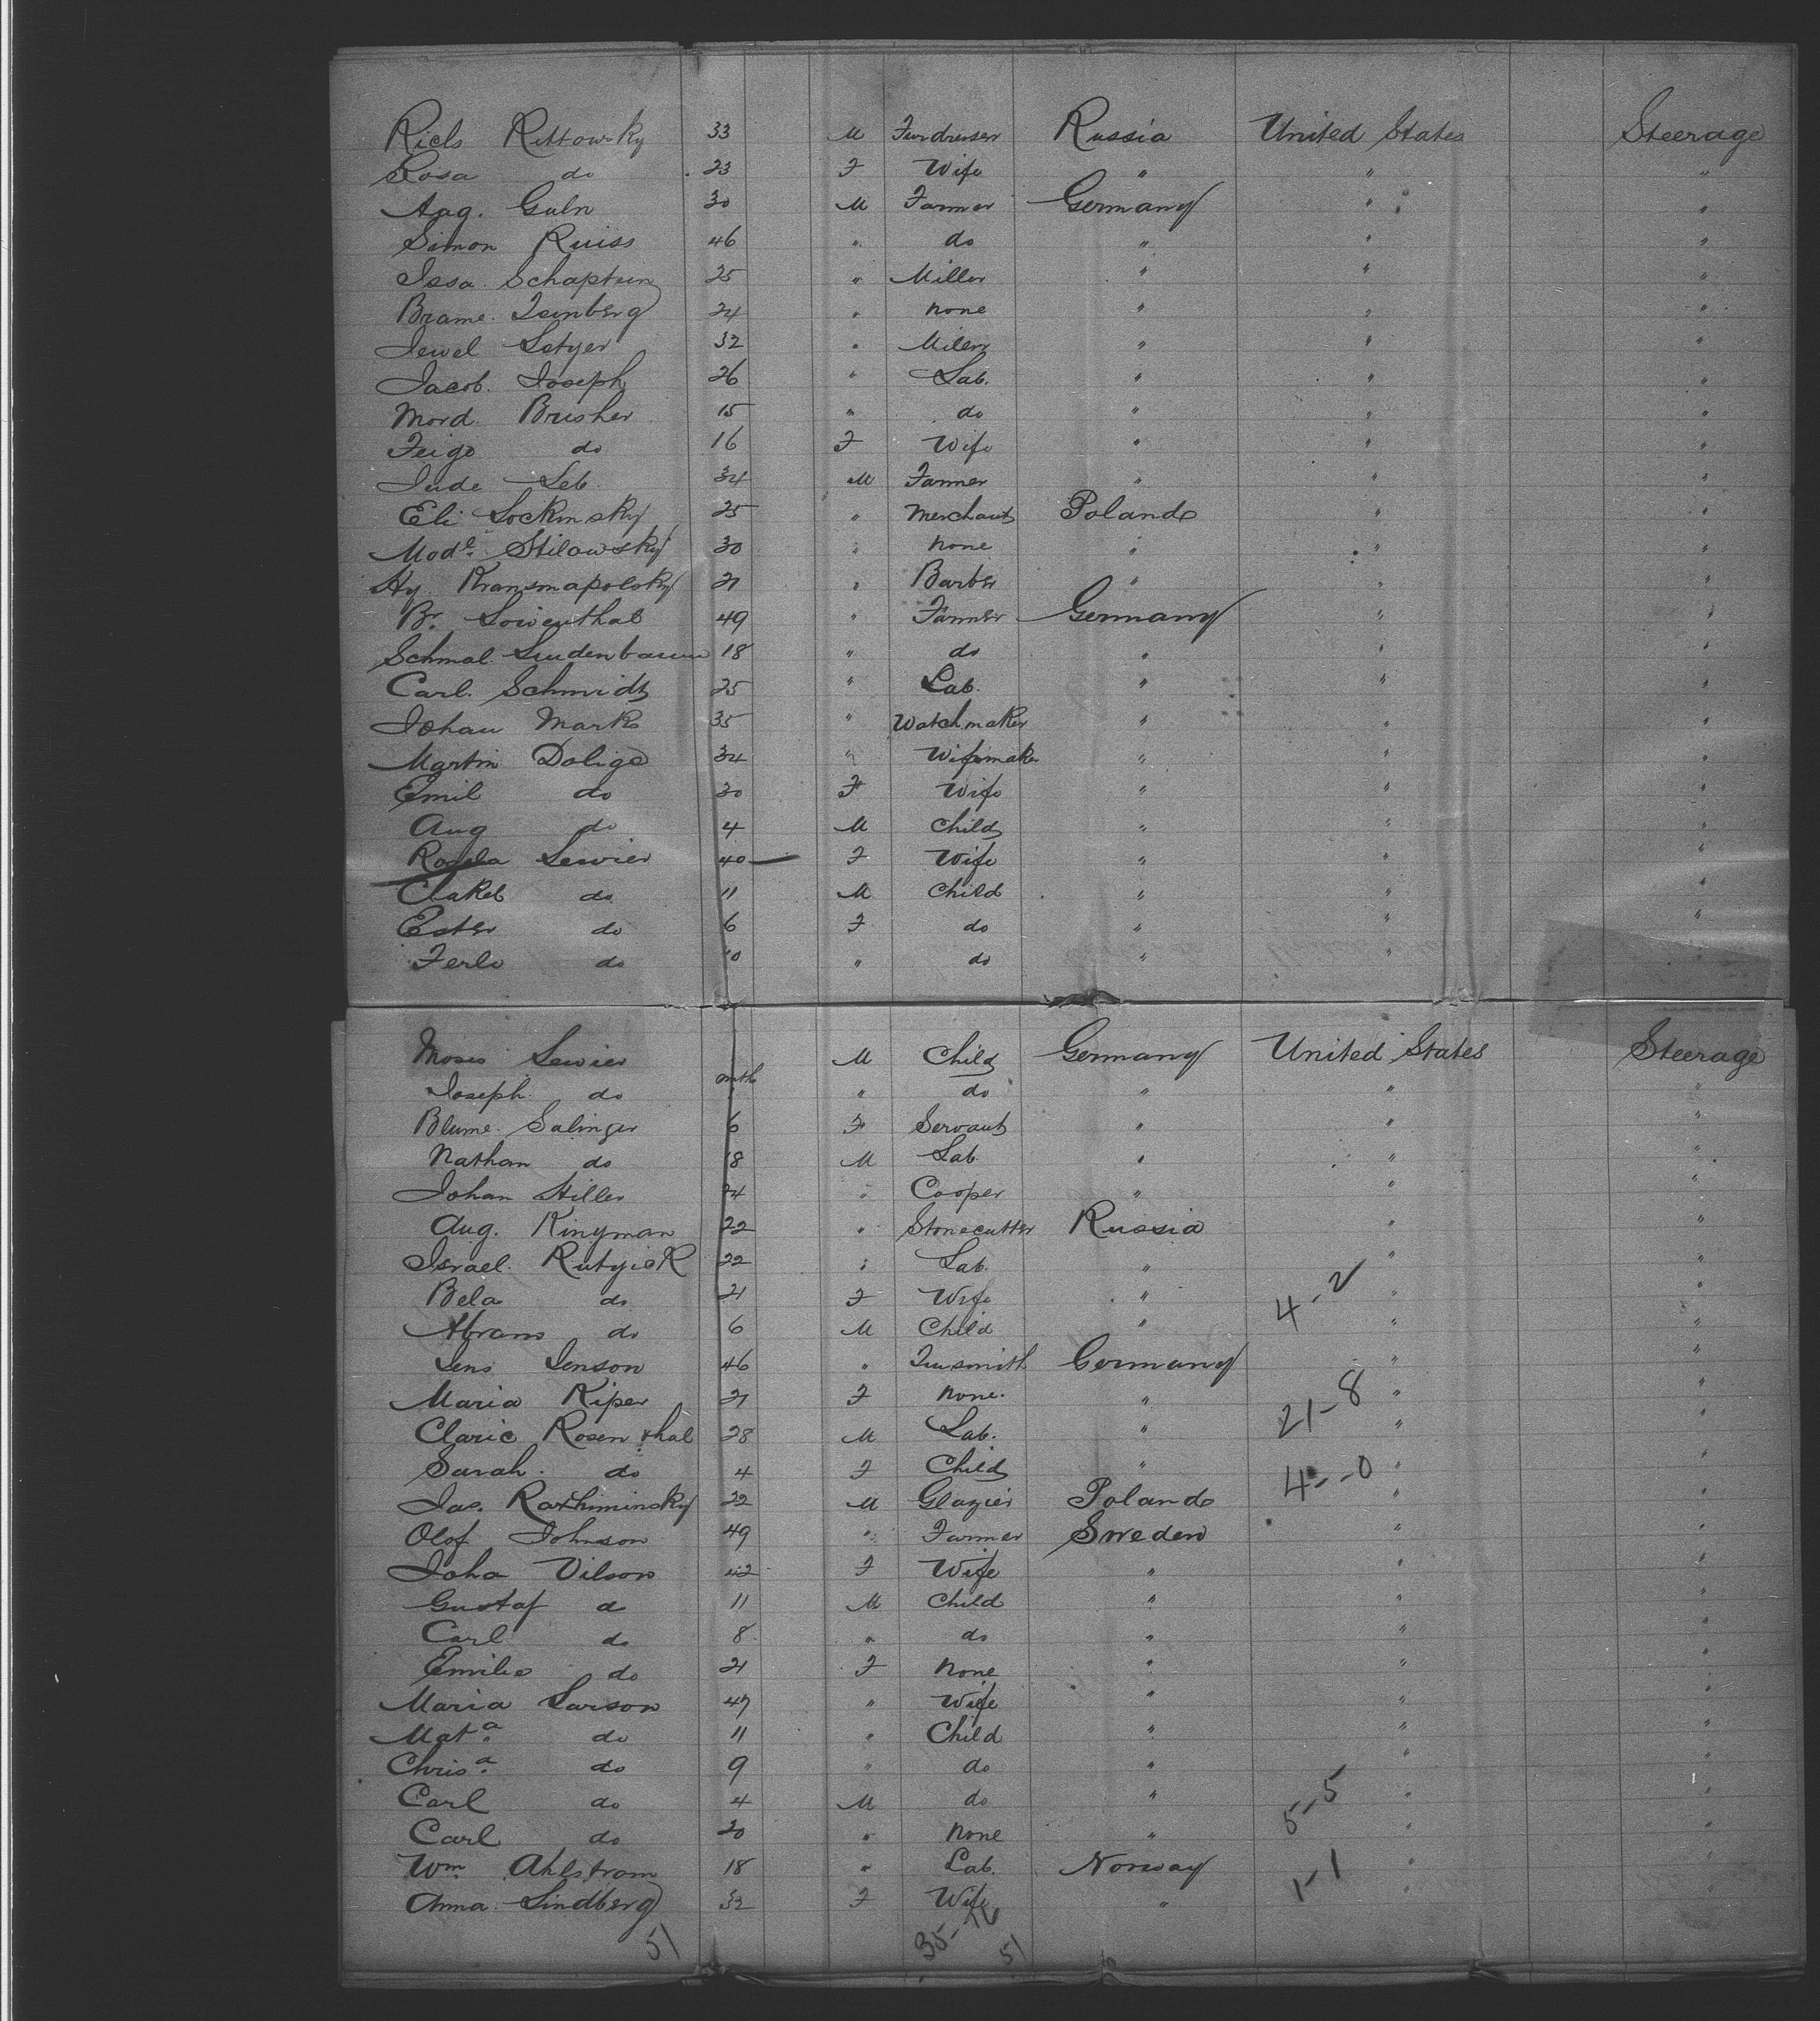 Riels Rittowsky 33 M Furdresser Russia United States Steerage
Rosa do 23 F Wife " " "
Aug. Guln 30 M Farmer Germany " "
Simon Ruiss 46 " do " " "
Issa. Schapturn 25 " Miller " " "
Brame. Isenberg 24 " none " " "
Jewel Setyer 32 " Miller " " "
Jacob. Joseph 26 " Lab. " " "
Mord. Brusher 15 " do " " "
Feige do 16 F Wife " " "
Jude Leb. 34 M Farmer " " "
Eli Lockmsky 25 " Merchant Poland " "
Mod.e Stilowsky 30 " none " " "
Hy. Kransmapolsky 21 " Barber " " "
Br. Lowenthal 49 " Farmer Germany " "
Schmal. Lindenbaum 18 " do " " "
Carl. Schmidt 25 " Lab. " " "
Johan Mark 35 " Watchmaker " " "
Martin Doliga 34 " Wifemaker " " "
Emil do 30 F Wife " " "
Aug do 4 M Child " " "
Lewier 40 F Wife " " "
Chakel do 11 M Child " " "
Ester do 6 F do " " "
Ferle do 10 " do " " "
Moses Lewier M Child Germany United States Steerage
Joseph. do mth " do " " "
Blume. Salinger 6 F Servant " " "
Nathan do 18 M Lab " " "
Johan Hiller 24 " Cooper " " "
Aug. Kingman 22 " Stonecutter Russia " "
Israel. Rutyick 22 " Lab. " " "
Bela do 21 F Wife " 4-2 " "
Abram do 6 M Child " " "
Jens Jenson 46 " Tinsmith Germany " "
Maria Kiper 21 F none. " 21-8 " "
Claric Rosenthal 28 M Lab. " " "
Sarah. do 4 F Child " 4--0 " "
Jas. Rathiminsky 22 M Glazier Poland " "
Olof Johnson 49 " Farmer Sweden " "
Joha Vilson 42 F Wife " " "
Gustaf d 11 M Child " " "
Carl do 8 " do " " "
Emilie do 21 F none " " "
Maria Larson 47 " Wife " " "
Mat.a do 11 " Child " " "
Chris.a do 9 " do " " "
Carl do 4 M do " 5-5 " "
Carl do 20 " none " " "
Wm. Ahlstrom 18 " Lab. Norway 1-1 " "
Anna. Lindberg 32 F Wife " " "
51 35-16 51